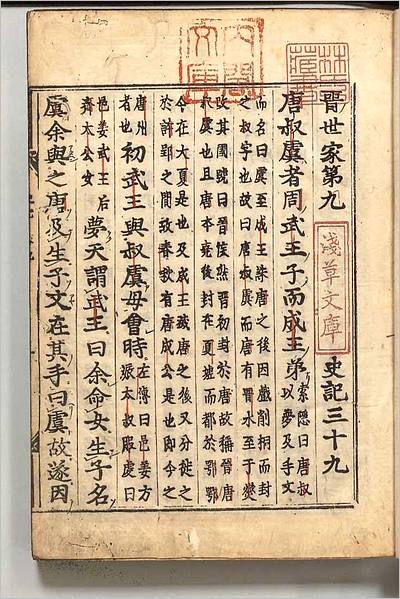 內閣文庫
林氏藏書
晉世家第九
淺草文庫
史記三十九
唐叔虞者周武王子而成王弟
索隱曰唐叔
以夢及手文
而名曰虞至成王誅唐之後因戲削桐而封
之叔字也故曰唐叔虞而唐有晉水至于燮
改其國號曰晉侯然晉初封於唐故稱晉唐
叔虞也且唐本堯後封在夏墟而都於鄂鄂
今在大夏是也及成王滅唐之後又分徙之
於許郢之間故春秋有唐成公是也即今之
唐州
者也
初武王與叔虞母會時
左傳曰邑姜方
娠太叔服虔曰
邑姜武王后
齊太公女
夢天謂武王曰余命女生子名
虞余與之唐及生子文在其手曰虞故遂因